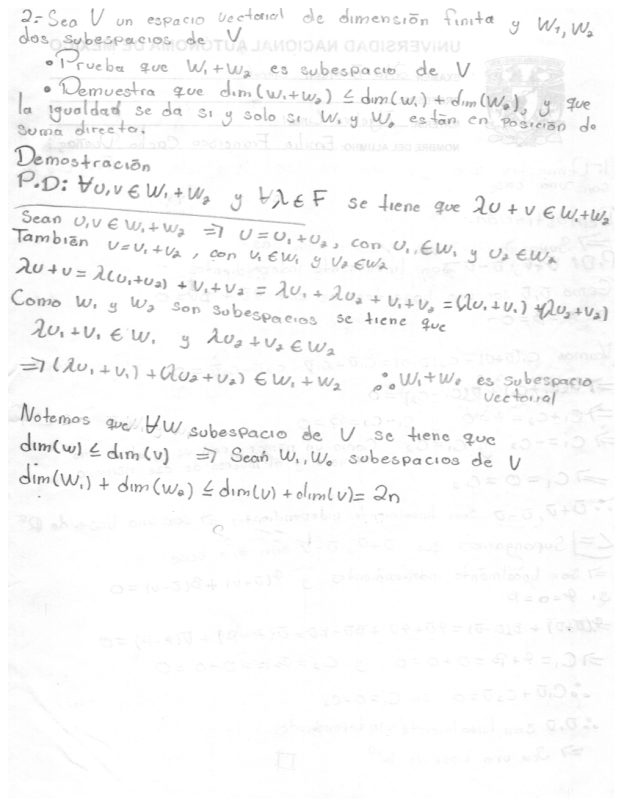 2.- Sea V un espacio vectorial de dimensión finita y W₁, W₂
dos subespacios de V
• Prueba que W₁+W₂ es subespacio de V
• Demuestra que dim(W₁+W₂) ≤ dim(W₁) + dim(W₂), y que
la igualdad se da si y solo si W₁ y W₂ están en posición de
suma directa.
Demostración
P.D: ∀u,v ∈ W₁+W₂ y ∀λ∈F se tiene que λu+v ∈ W₁+W₂
Sean u,v ∈ W₁+W₂ ⇒ u=u₁+u₂, con u₁∈W₁ y u₂∈W₂
También v=v₁+v₂, con v₁∈W₁ y v₂∈W₂
λu+v = λ(u₁+u₂) + v₁+v₂ = λu₁+λu₂+v₁+v₂ = (λu₁+v₁)+(λu₂+v₂)
Como W₁ y W₂ son subespacios se tiene que
λu₁+v₁ ∈ W₁ y λu₂+v₂ ∈ W₂
⇒ (λu₁+v₁)+(λu₂+v₂) ∈ W₁+W₂ ∴ W₁+W₂ es subespacio
vectorial
Notemos que ∀W subespacio de V se tiene que
dim(w) ≤ dim(v) ⇒ Sean W₁, W₂ subespacios de V
dim(W₁) + dim(W₂) ≤ dim(v) + dim(v) = 2n